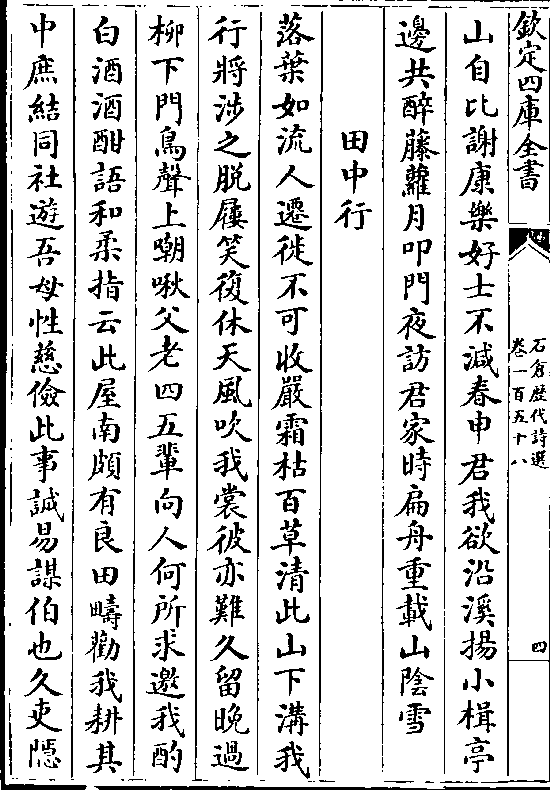 欽定四庫全書
石倉歴代詩選
卷一百五十八
四
山自比謝康樂好士不減春申君我欲沿溪揚小楫亭
邊共醉藤蘿月叩門夜訪君家時扁舟重載山陰雪
田中行
落葉如流人遷徙不可收嚴霜枯百草清此山下溝我
行將涉之脱屨笑復休天風吹我裳彼亦難久留晚過
柳下門鳥聲上嘲啾父老四五輩向人何所求邀我酌
白酒酒酣語和柔指云此屋南頗有良田疇勸我耕其
中庶結同社遊吾母性慈儉此事誠易謀伯也久吏隱